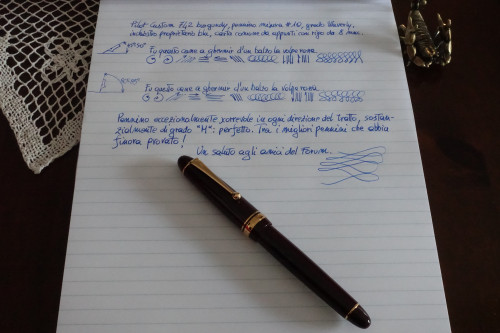 Pilot Custom 742 burgundy, pennino misura #10, grado Waverly,
inchiostro proprietario blu, carta comune da appunti con rigo da 8 mm.
Fu questo cane a ghermir d'un balzo la volpe rossa.
Fu questo cane a ghermir d'un balzo la volpe rossa.
Pennino eccezionalmente scorrevole in ogni direzione del tratto, sostan-
zialmente di grado "M": perfetto. Tra i migliori pennini che abbia
finora provato!
Un saluto agli amici del Forum.